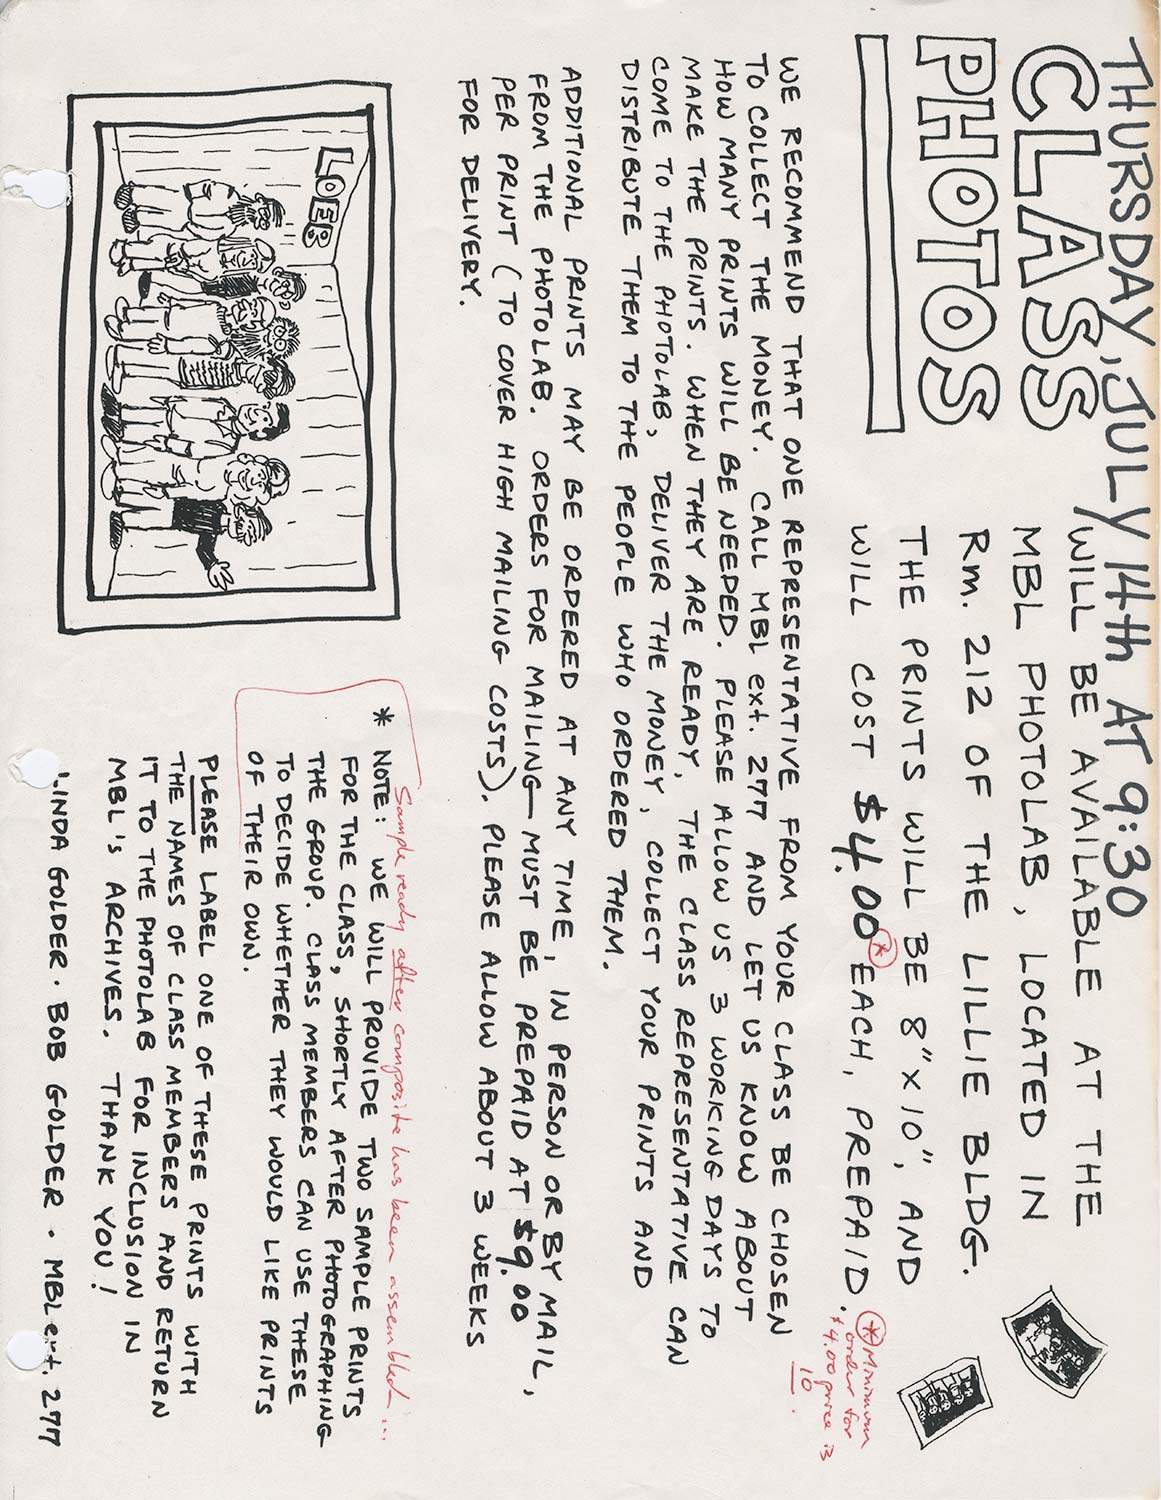 THURSDAY, JULY 14th AT 9:30
CLASS
PHOTOS
WILL BE AVAILABLE AT THE
MBL PHOTOLAB, LOCATED IN
Rm. 212 OF THE LILLIE BLDG.
THE PRINTS WILL BE 8" x 10", AND
WILL COST $4.00* EACH, PREPAID.
* Minimum
order for
$4.00 price is
10.
WE RECOMMEND THAT ONE REPRESENTATIVE FROM YOUR CLASS BE CHOSEN
TO COLLECT THE MONEY. CALL MBL ext. 277 AND LET US KNOW ABOUT
HOW MANY PRINTS WILL BE NEEDED. PLEASE ALLOW US 3 WORKING DAYS TO
MAKE THE PRINTS. WHEN THEY ARE READY, THE CLASS REPRESENTATIVE CAN
COME TO THE PHOTOLAB, DELIVER THE MONEY, COLLECT YOUR PRINTS AND
DISTRIBUTE THEM TO THE PEOPLE WHO ORDERED THEM.
ADDITIONAL PRINTS MAY BE ORDERED AT ANY TIME, IN PERSON OR BY MAIL,
FROM THE PHOTOLAB. ORDERS FOR MAILING MUST BE PREPAID AT $9.00
PER PRINT (TO COVER HIGH MAILING COSTS). PLEASE ALLOW ABOUT 3 WEEKS
FOR DELIVERY.
LOEB
Sample ready after composite has been assembled...
* NOTE: WE WILL PROVIDE TWO SAMPLE PRINTS
FOR THE CLASS, SHORTLY AFTER PHOTOGRAPHING
THE GROUP. CLASS MEMBERS CAN USE THESE
TO DECIDE WHETHER THEY WOULD LIKE PRINTS
OF THEIR OWN.
PLEASE LABEL ONE OF THESE PRINTS WITH
THE NAMES OF CLASS MEMBERS AND RETURN
IT TO THE PHOTOLAB FOR INCLUSION IN
MBL'S ARCHIVES. THANK YOU!
LINDA GOLDER · BOB GOLDER · MBL ext. 277